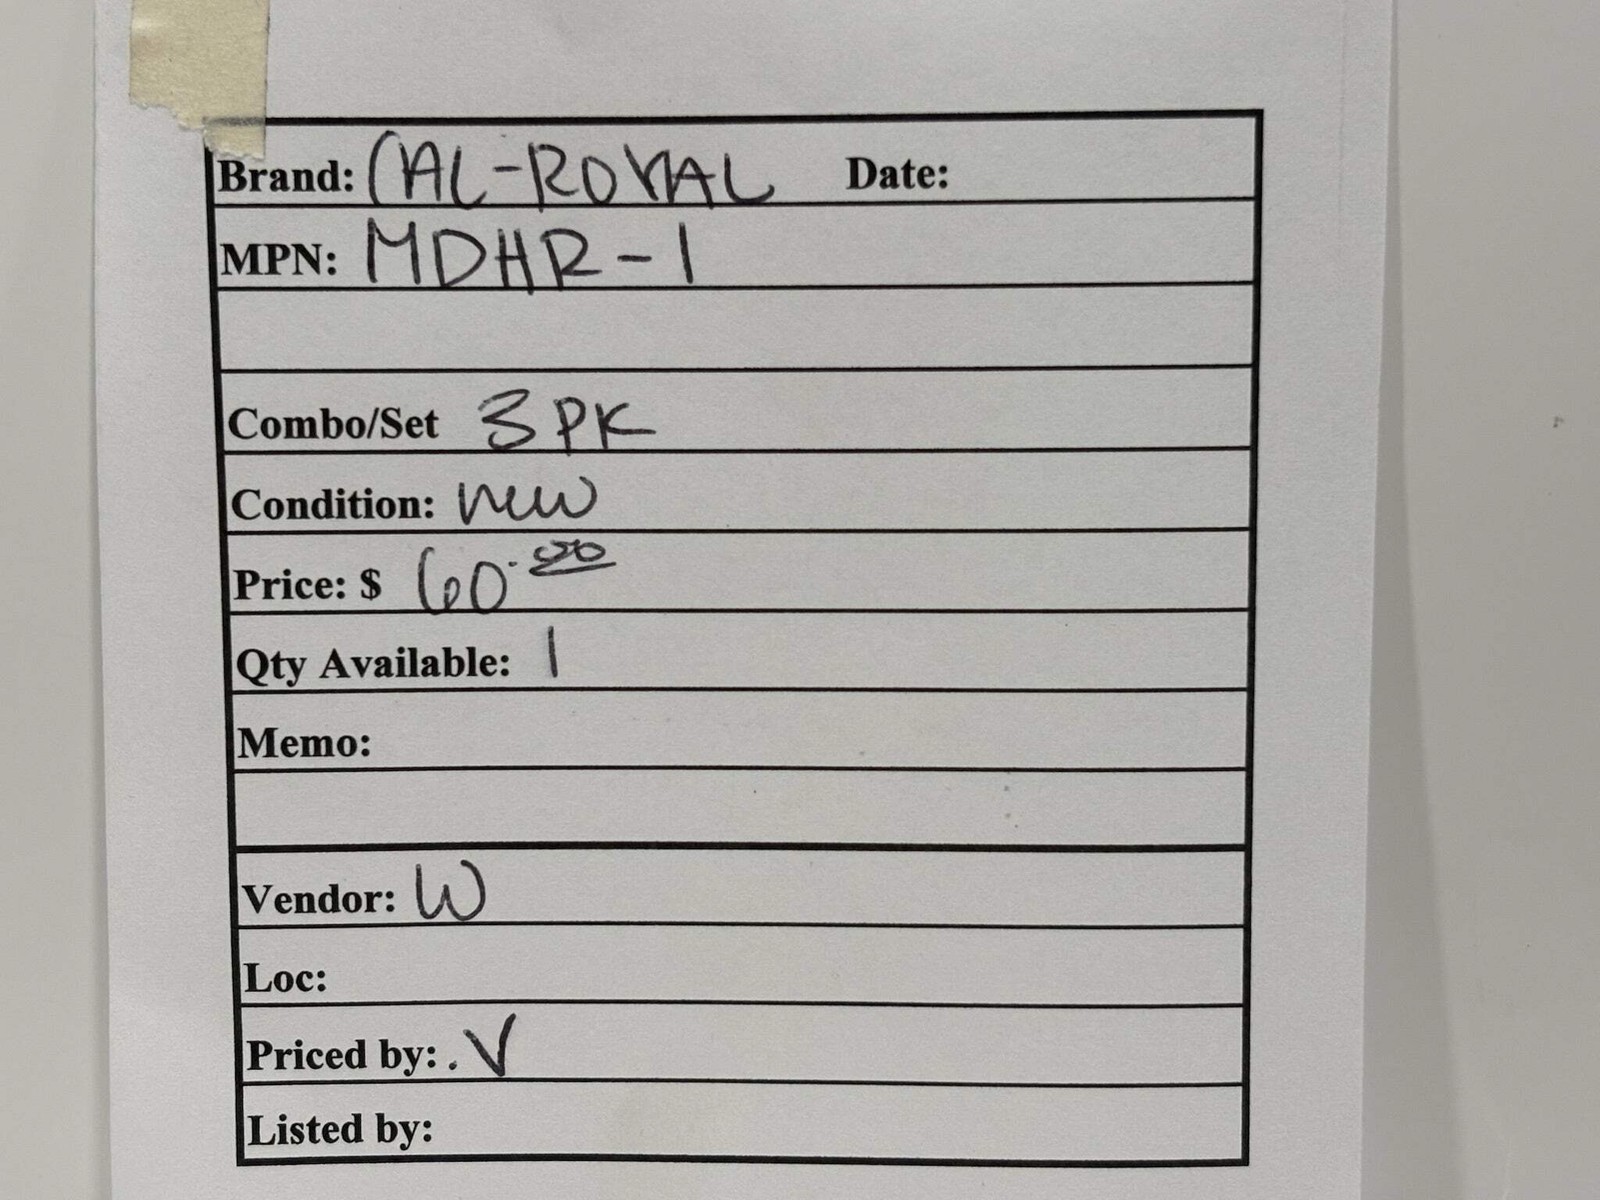 Brand: CAL-ROYAL Date:
MPN: MDHR-1
Combo/Set 3 PK
Condition: new
Price: $ 60.00
Qty Available: 1
Memo:
Vendor: W
Loc:
Priced by: . V
Listed by: